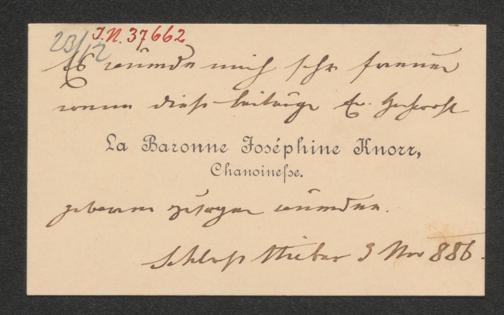 23/12 J.N. 37662
Es würde mich sehr freuen
wenn diese beiträge Ew.
La Baronne Joséphine Knorr,
Chanoinesse.
zusagen würden.
Schloss Stiebar 3 Nov 886.